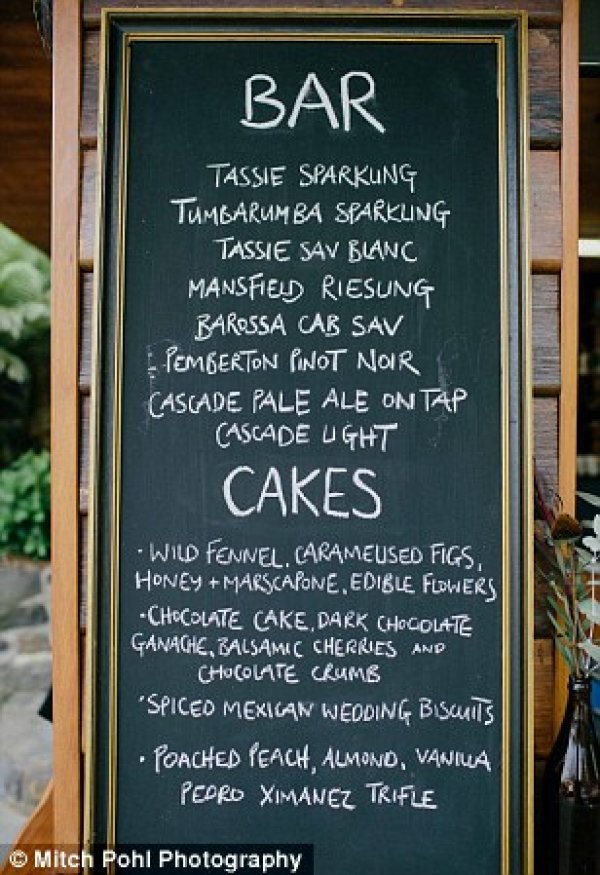 BAR
TASSIE SPARKLING
TUMBARUMBA SPARKLING
TASSIE SAV BLANC
MANSFIELD RIESLING
BAROSSA CAB SAV
PEMBERTON PINOT NOIR
CASCADE PALE ALE ON TAP
CASCADE LIGHT
CAKES
• WILD FENNEL, CARAMELISED FIGS,
HONEY + MARSCAPONE, EDIBLE FLOWERS
• CHOCOLATE CAKE, DARK CHOCOLATE
GANACHE, BALSAMIC CHERRIES AND
CHOCOLATE CRUMB
• SPICED MEXICAN WEDDING BISCUITS
• POACHED PEACH, ALMOND, VANILLA
PEDRO XIMANEZ TRIFLE
© Mitch Pohl Photography